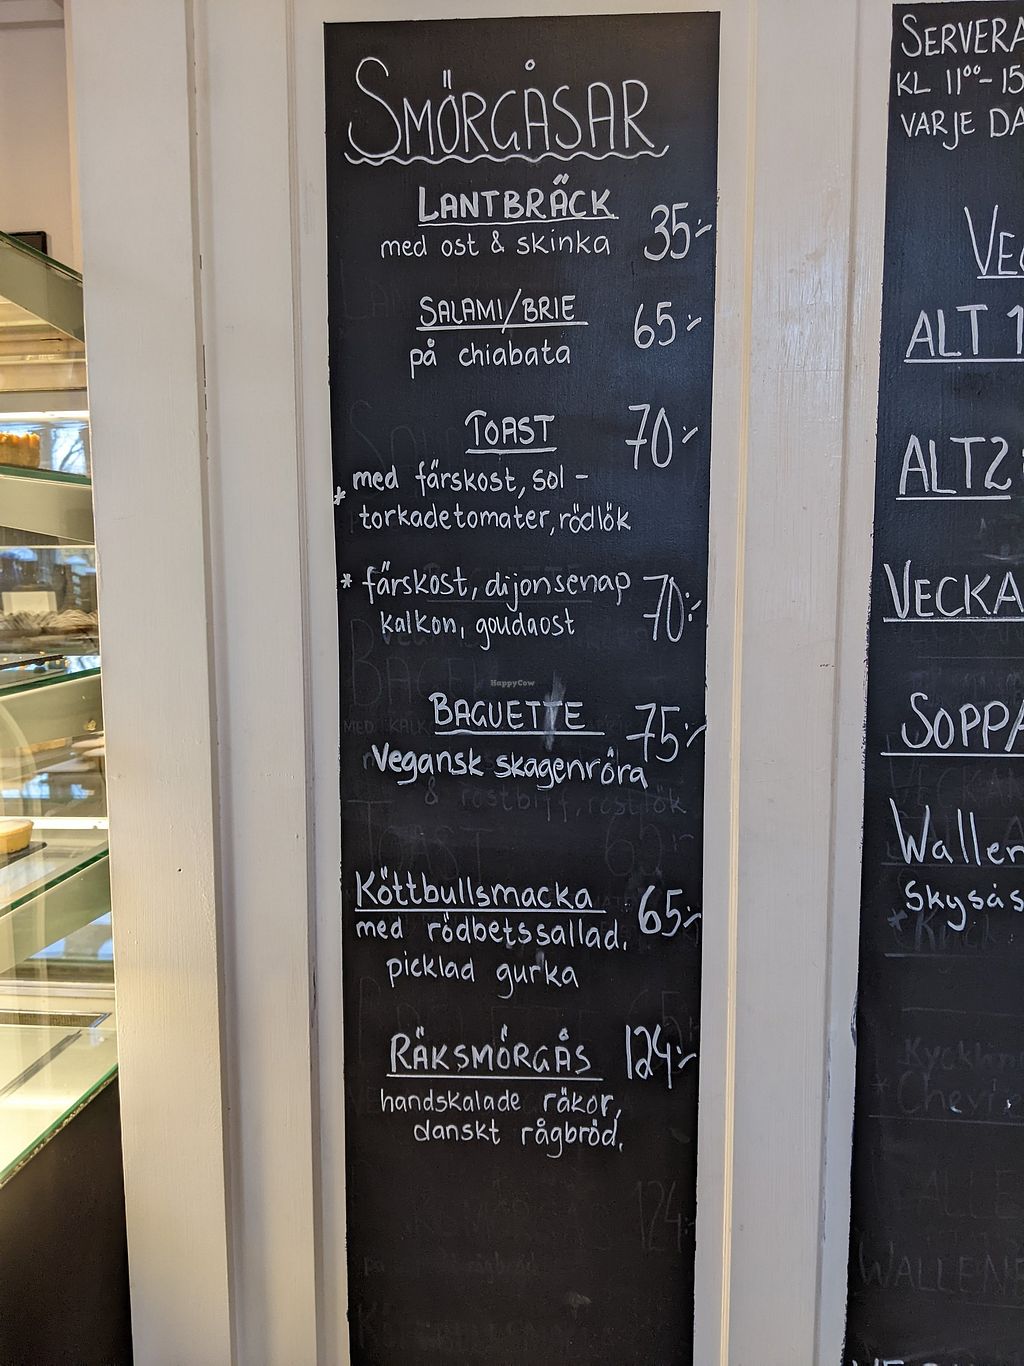 SMÖRGÅSAR
LANTBRÄCK 35:-
med ost & skinka
SALAMI/BRIE 65:-
på chiabata
TOAST 70:-
* med färskost, sol-
torkadetomater, rödlök
* färskost, dijonsenap 70:-
kalkon, goudaost
HappyCow
BAGUETTE 75:-
Vegansk skagenröra
& rostbiff, rostlök
TOAST 65:-
Köttbullsmacka 65:-
med rödbetssallad,
picklad gurka
RÄKSMÖRGÅS 124:-
handskalade räkor,
danskt rågbröd,
124:-
SERVERA
KL 11⁰⁰-15
VARJE DA
VEC
ALT 1
ALT2
VECKA
SOPPA
Wallen
skysås